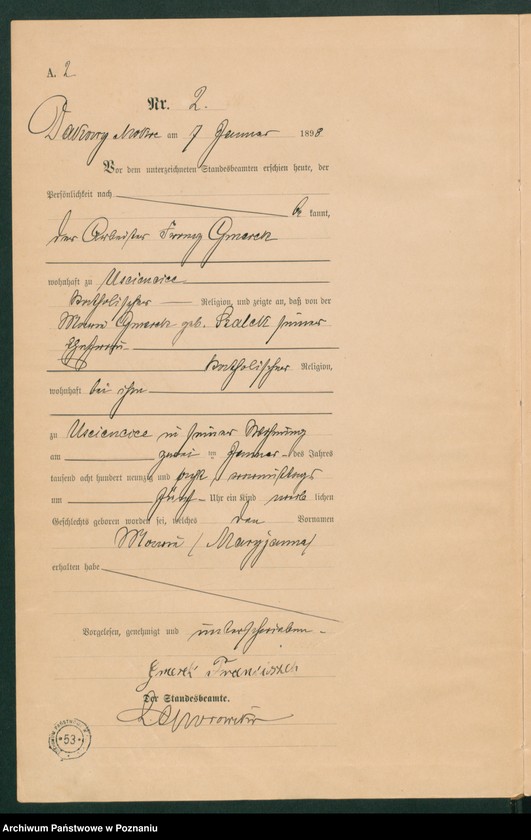 A. 2
Nr. 2.
Dakowy Mokre am 7 Januar 1898
Vor dem unterzeichneten Standesbeamten erschien heute, der
Persönlichkeit nach
be kannt,
der Arbeiter Franz Gmerek
wohnhaft zu Usciencice
katholischer Religion, und zeigte an, daß von der
Maria Gmerek geb. seiner
Ehefrau
katholischer Religion,
wohnhaft bei ihm
zu Usciencice in seiner Wohnung
am zwei ten Januar des Jahres
tausend acht hundert neunzig und acht, vormittags
um fünf Uhr ein Kind weib lichen
Geschlechts geboren worden sei, welches den Vornamen
Maria (Maryjanna)
erhalten habe
Vorgelesen, genehmigt und unterschrieben
Gmerek Franciszek
Der Standesbeamte.
53
Archiwum Państwowe w Poznaniu